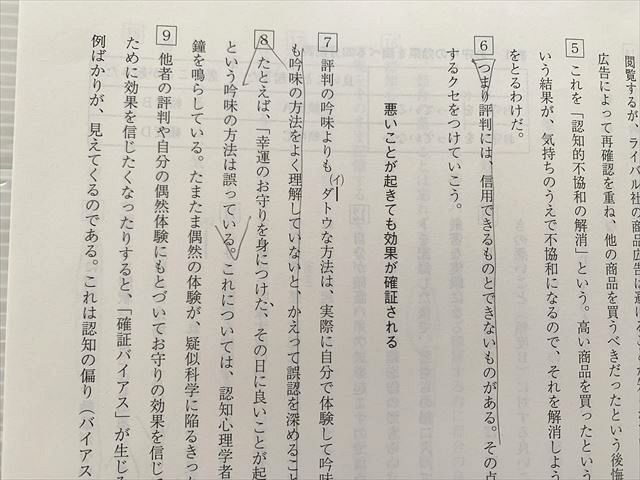 閲覧するが、ライバル社の商品広告は避け
広告によって再確認を重ね、他の商品を買うべきだったという後悔
5 これを「認知的不協和の解消」という。高い商品を買ったという
いう結果が、気持ちのうえで不協和になるので、それを解消しよう
をとるわけだ。
6 つまり評判には、信用できるものとできないものがある。その点
するクセをつけていこう。
悪いことが起きても効果が確証される
7 評判の吟味よりも(イ)ダトウな方法は、実際に自分で体験して吟味
も吟味の方法をよく理解していないと、かえって誤認を深めること
8 たとえば、「幸運のお守りを身につけた、その日に良いことが起
という吟味の方法は誤っている。これについては、認知心理学者
鐘を鳴らしている。たまたま偶然の体験が、疑似科学に陥るきっ
9 他者の評判や自分の偶然体験にもとづいてお守りの効果を信じ
ために効果を信じたくなったりすると、「確証バイアス」が生じ
例ばかりが、見えてくるのである。これは認知の偏り（バイアス